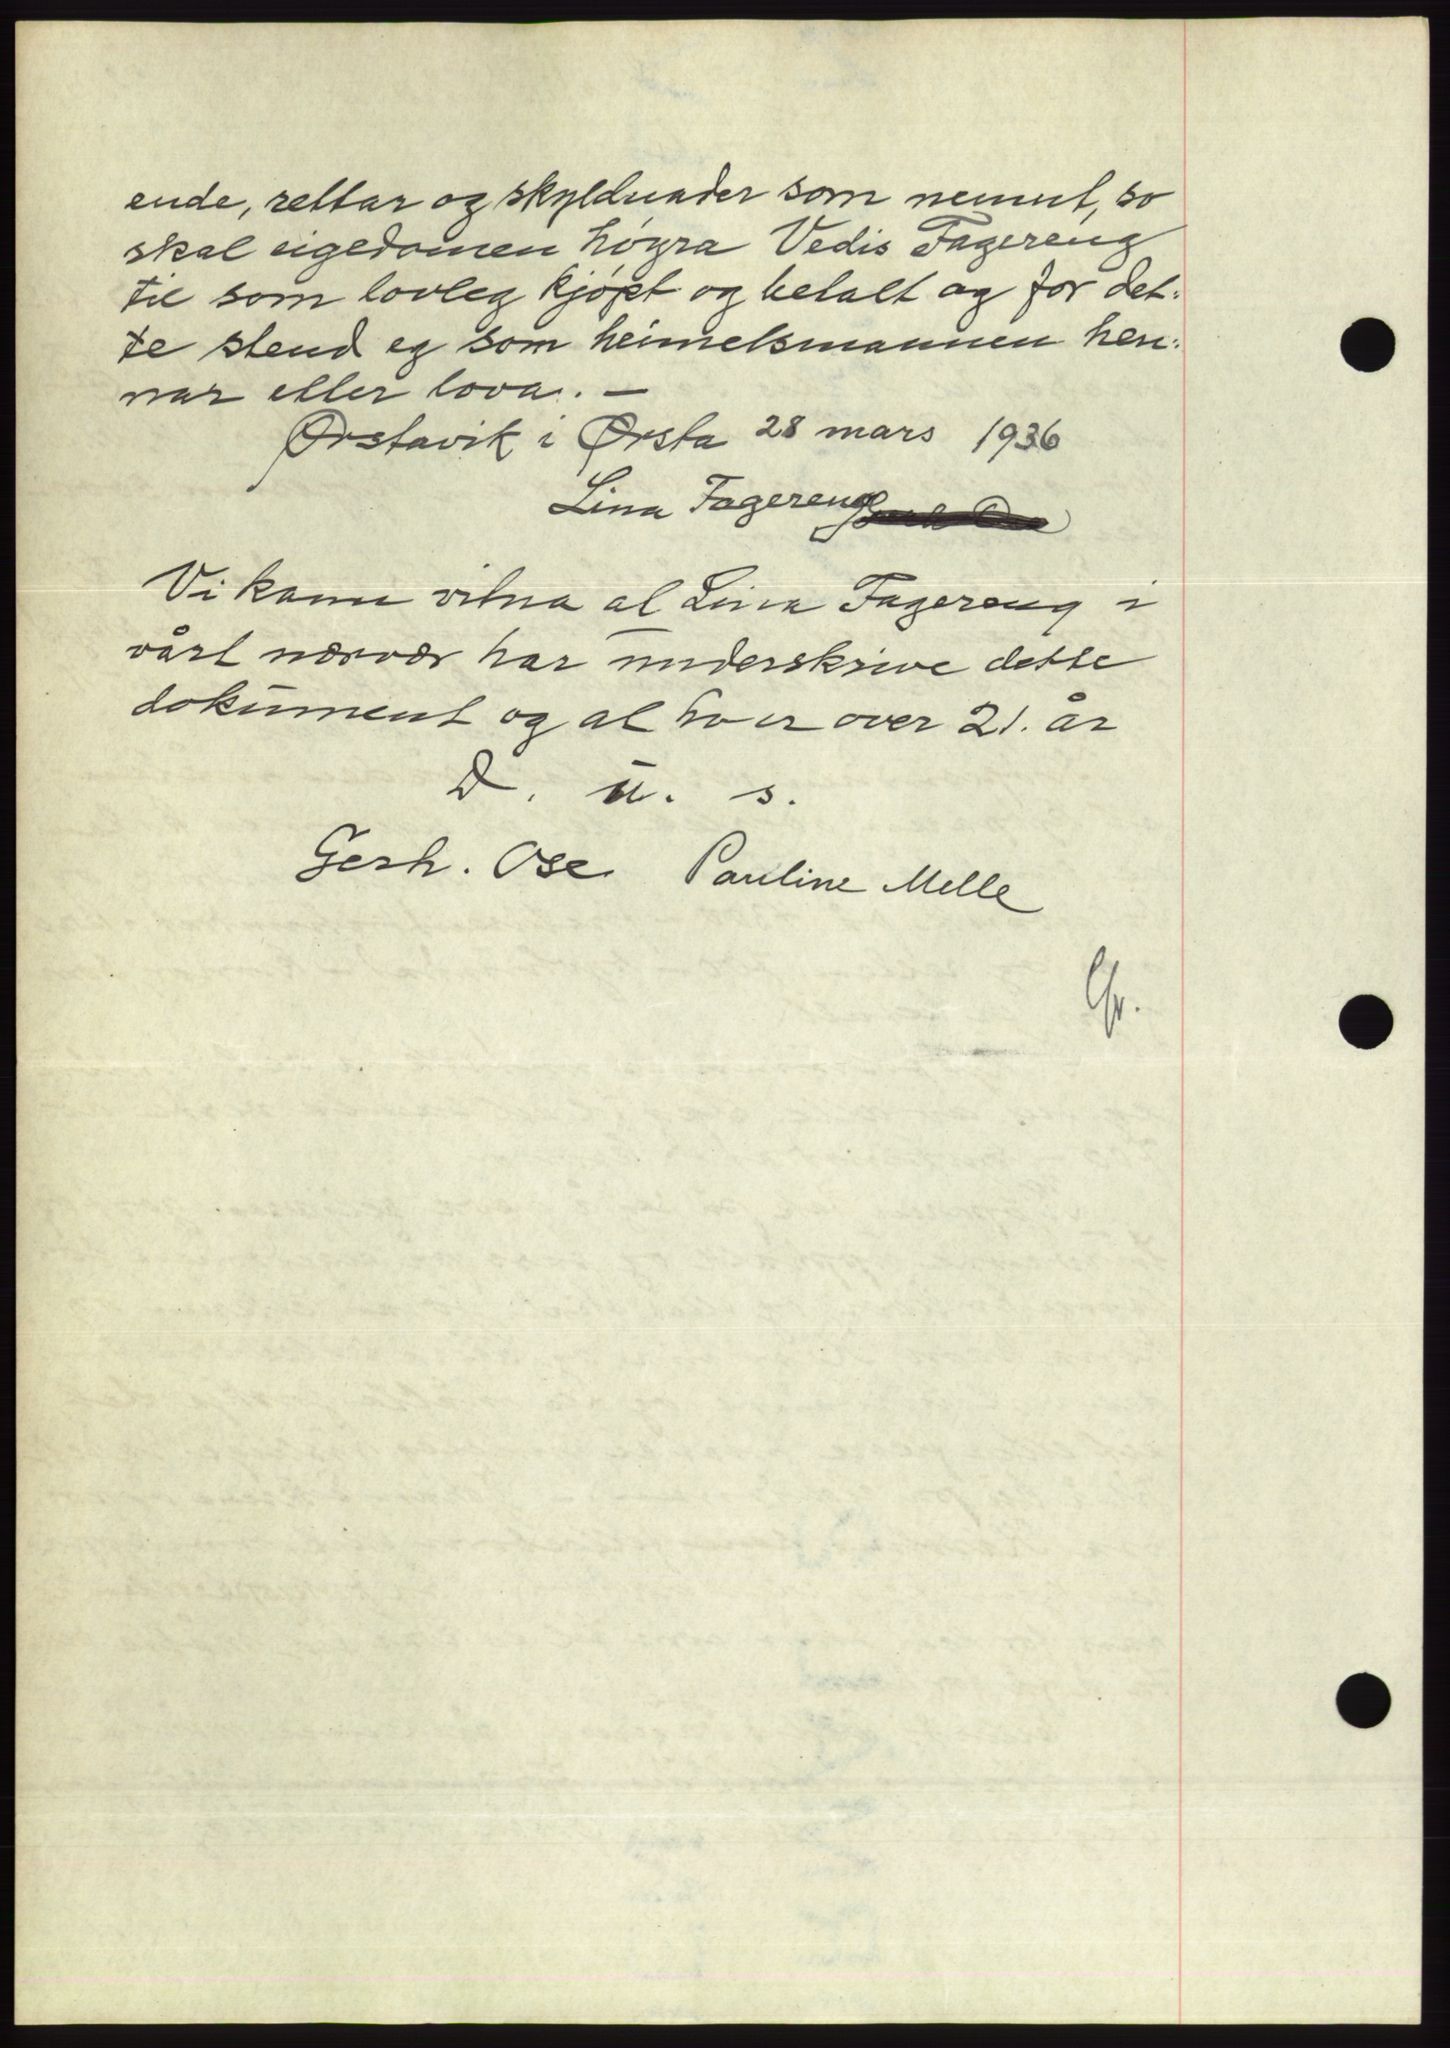 ende, rettar og skyldnader som nemnt, so
skal eigedomen høyra Vedis Fagereng
til som lovleg kjøpt og betalt og for det-
te stend eg som heimelsmannen hen-
nar etter lova. —
Ørstavik i Ørsta 28 mars 1936
Lina Fagereng
Vi kann vitna at Lina Fagereng i
vårt nærvær har underskrive dette
dokument og at ho er over 21. år
D. u. s.
Gerh. Ose Pauline Melle